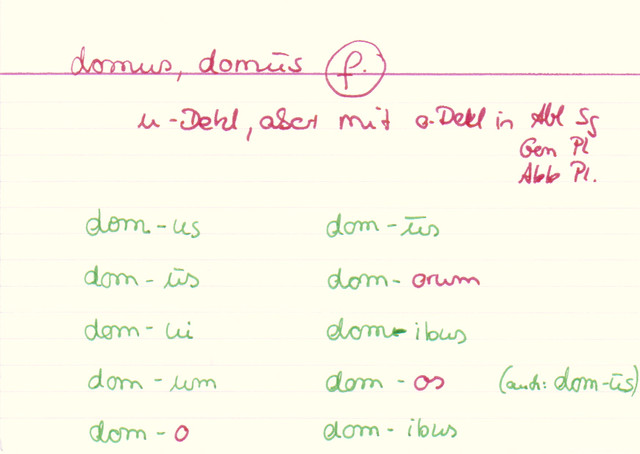 domus, domūs f.
u-Dekl, aber mit o-Dekl in Abl Sg
Gen Pl
Akk Pl.
dom-us dom-ūs
dom-ūs dom-orum
dom-ui dom-ibus
dom-um dom-os (auch: dom-ūs)
dom-o dom-ibus